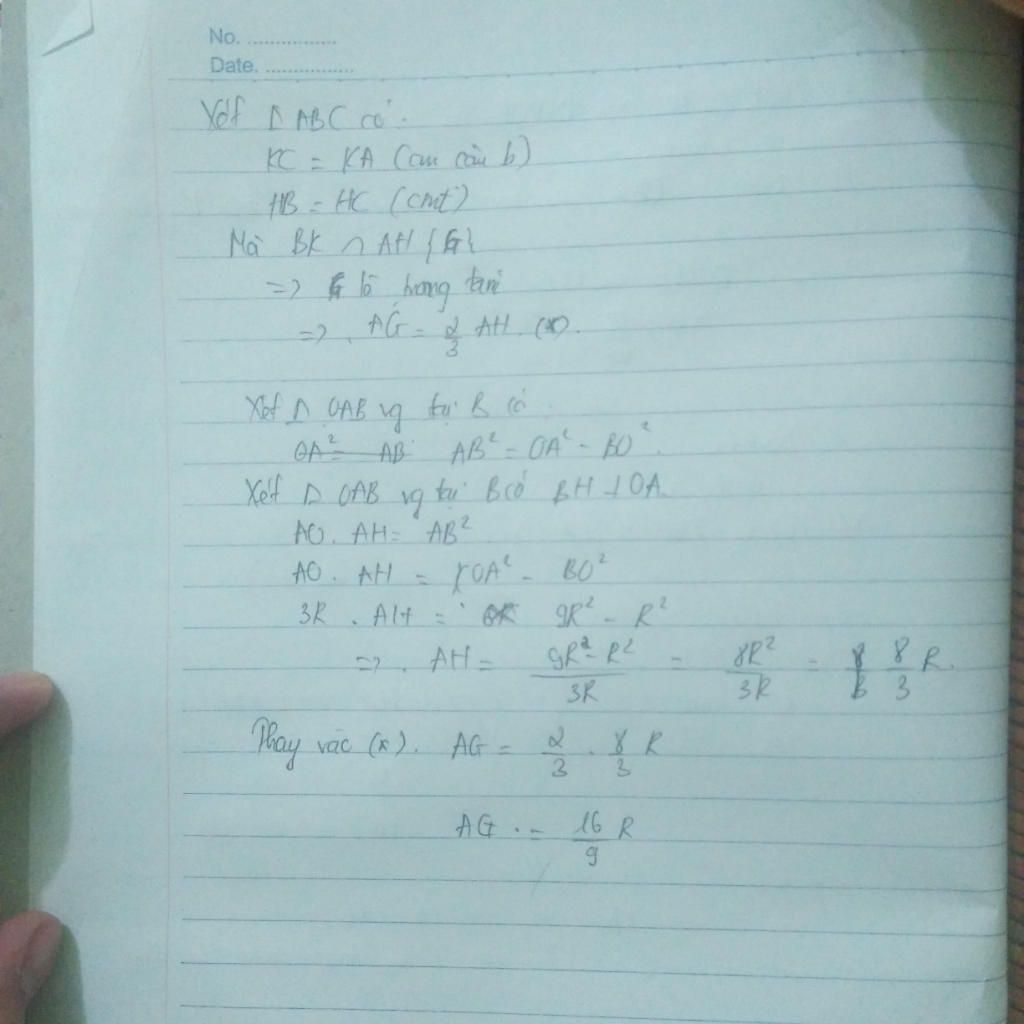 No. ................
Date. ................
Xét Δ ABC có.
KC = KA (cm câu b)
HB = HC (cmt)
Mà BK ∩ AH {G}
=> G là trong tâm
=> . AG = 2/3 AH. (*).
Xét Δ OAB vg tại B có
OA² = AB AB² = OA² - BO².
Xét Δ OAB vg tại B có BH ⊥ OA.
AO. AH = AB²
AO. AH = OA² - BO²
3R . AH = 9R² - R²
=> . AH = 9R² - R²/3R = 8R²/3R = 8/3 R.
Thay vào (*). AG = 2/3 . 8/3 R
AG = 16/9 R